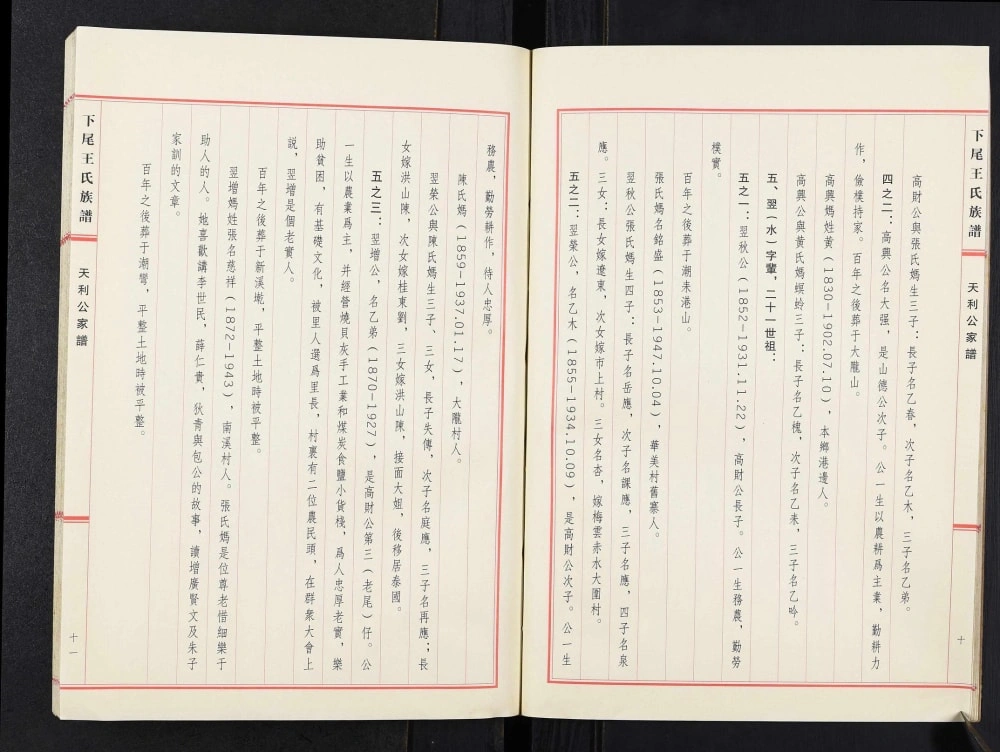 下尾王氏族譜
天利公家譜
十
高財公與張氏媽生三子：長子名乙春，次子名乙木，三子名乙弟。
四之二：高興公名大强，是山德公次子。公一生以農耕爲主業，勤耕力
作，儉樸持家。百年之後葬于大隴山。
高興媽姓黄（1830-1902.07.10），本鄉港邊人。
高興公與黄氏媽螟蛉三子：長子名乙槐，次子名乙耒，三子名乙吟。
五、翌（水）字輩，二十一世祖：
五之一：翌秋公（1852-1931.11.22），高財公長子。公一生務農，勤勞
樸實。
百年之後葬于潮耒港山。
張氏媽名銘盛（1853-1947.10.04），華美村舊寨人。
翌秋公張氏媽生四子：長子名岳應，次子名課應，三子名應，四子名泉
應。三女：長女嫁遼東，次女嫁市上村。三女名杏，嫁梅雲赤水大圍村。
五之二：翌榮公，名乙木（1855-1934.10.09），是高財公次子。公一生
務農，勤勞耕作，待人忠厚。
陳氏媽（1859-1937.01.17），大隴村人。
翌榮公與陳氏媽生三子、三女，長子失傳，次子名庭應，三子名再應；長
女嫁洪山陳，次女嫁桂東劉，三女嫁洪山陳，接面大姐，後移居泰國。
五之三：翌增公，名乙弟（1870-1927），是高財公第三（老尾）仔。公
一生以農業爲主，并經營燒貝灰手工業和煤炭食鹽小貨棧，爲人忠厚老實，樂
助貧困，有基礎文化，被里人選爲里長，村裏有二位農民頭，在群衆大會上
説，翌增是個老實人。
百年之後葬于新溪墘，平整土地時被平整。
翌增媽姓張名慈祥（1872-1943），南溪村人。張氏媽是位尊老惜細樂于
助人的人。她喜歡講李世民，薛仁貴，狄青與包公的故事，讀增廣賢文及朱子
家訓的文章。
百年之後葬于潮彎，平整土地時被平整。
下尾王氏族譜
天利公家譜
十一